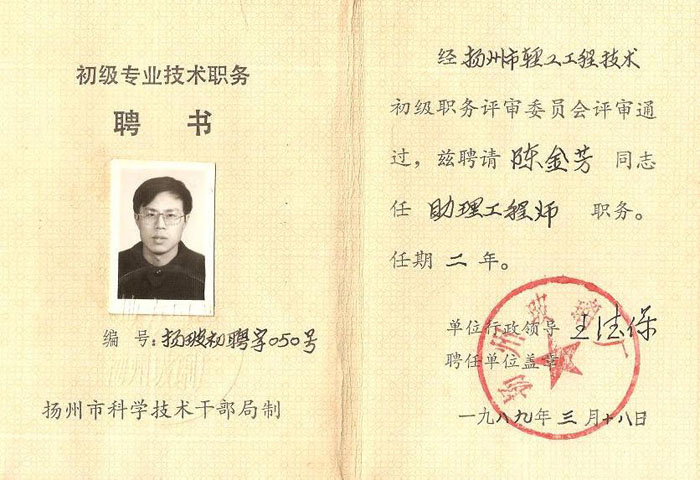 初级专业技术职务
聘书
编号：扬玻初聘字050号
扬州市科学技术干部局制
经扬州市轻工工程技术
初级职务评审委员会评审通
过，兹聘请陈金芳同志
任助理工程师职务。
任期二年。
单位行政领导王法保
聘任单位盖章
扬州玻璃厂
一九八九年三月十八日